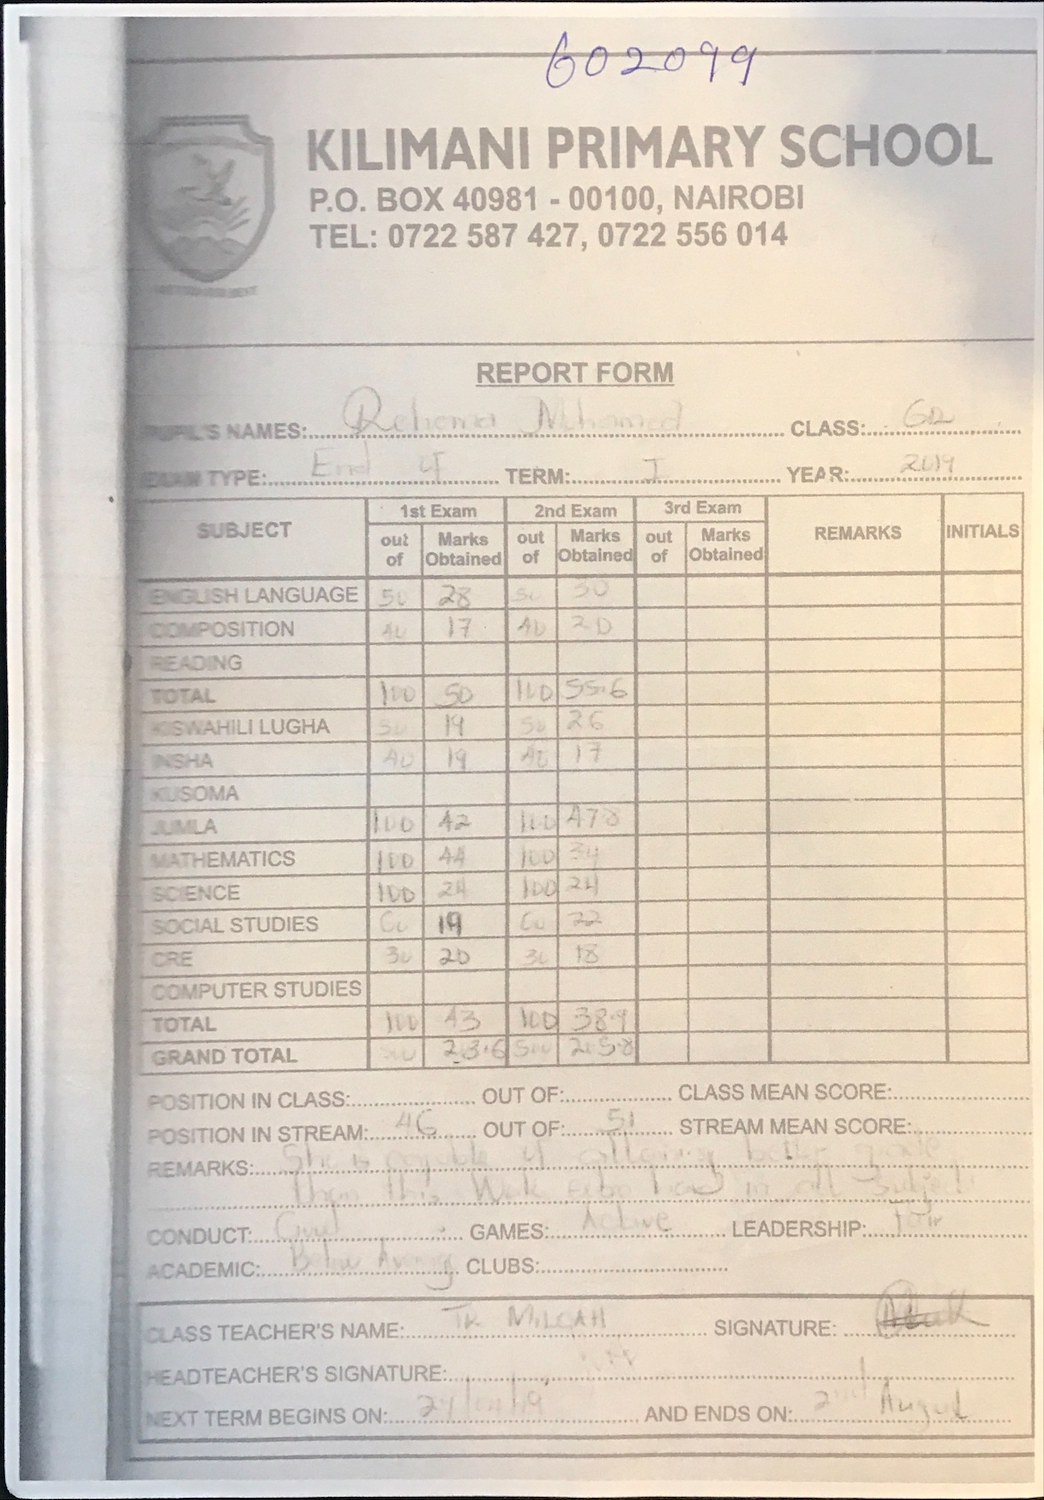 602099
KILIMANI PRIMARY SCHOOL
P.O. BOX 40981 - 00100, NAIROBI
TEL: 0722 587 427, 0722 556 014
REPORT FORM
PUPIL'S NAMES: Rehema Mohamed CLASS:
EXAM TYPE: End of TERM: I YEAR: 2019
SUBJECT 1st Exam 2nd Exam 3rd Exam REMARKS INITIALS
out of Marks Obtained out of Marks Obtained out of Marks Obtained
ENGLISH LANGUAGE 50 28 50 30
COMPOSITION 40 17 40 20
READING
TOTAL 100 50 100 55.6
KISWAHILI LUGHA 50 19 50 26
INSHA 40 19 40 17
KUSOMA
JUMLA 100 42 100 47.8
MATHEMATICS 100 44 100
SCIENCE 100 24 100 24
SOCIAL STUDIES 60 19 60 22
CRE 30 20 30 18
COMPUTER STUDIES
TOTAL 100 43 100 38.9
GRAND TOTAL 500
POSITION IN CLASS: OUT OF: CLASS MEAN SCORE:
POSITION IN STREAM: 46 OUT OF: 51 STREAM MEAN SCORE:
REMARKS: She is capable of attaining better grade
than this. Work extra hard in all subjects
CONDUCT: Good GAMES: Active LEADERSHIP: Fair
ACADEMIC: Below Average CLUBS:
CLASS TEACHER'S NAME: TR MILCAH SIGNATURE:
HEADTEACHER'S SIGNATURE:
NEXT TERM BEGINS ON: AND ENDS ON: 2nd August